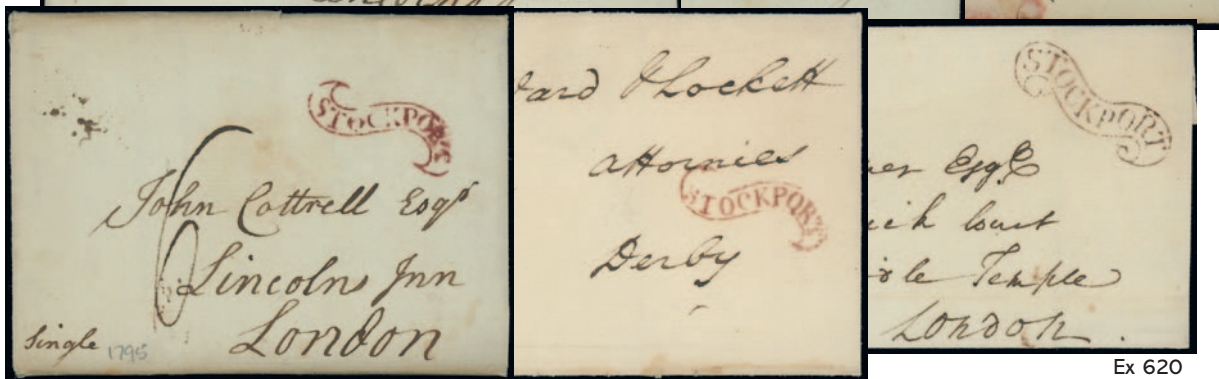 STOCKPORT
John Cottrell Esqr
6
Lincolns Inn
London
Single 1795
ard & Lockett
attornies
STOCKPORT
Derby
STOCKPORT
ner Esqr
ick Court
dle Temple
London.
Ex 620